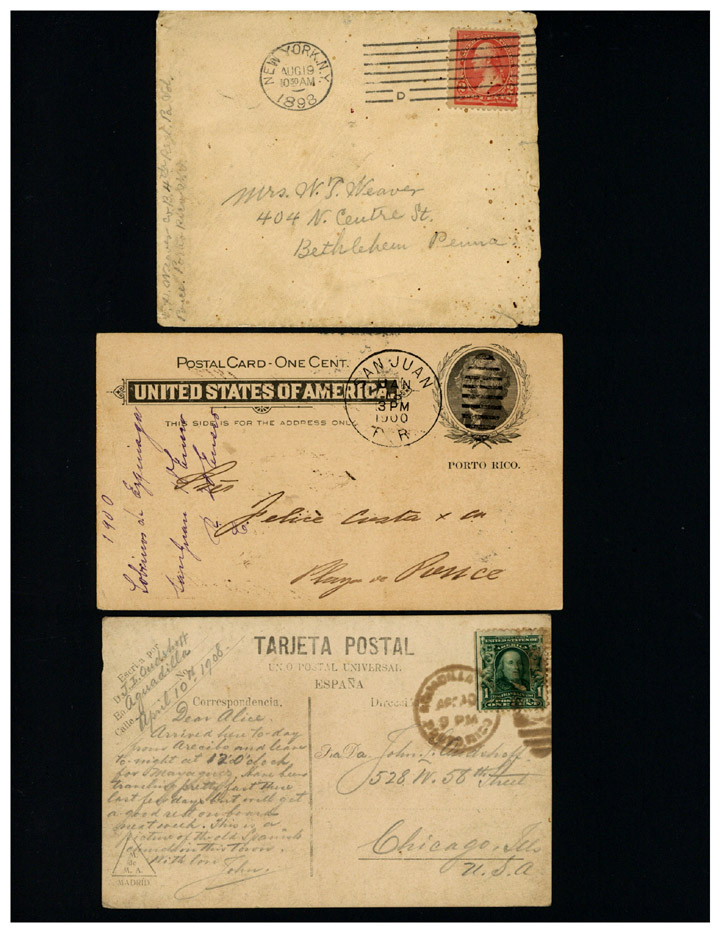 NEW YORK, N.Y.
AUG 19
10 30 AM
1898
D
2 CENTS 2
Mrs. W. T. Weaver
404 N. Centre St.
Bethlehem Penna
Ponce. Porto Rico
POSTAL CARD - ONE CENT.
UNITED STATES OF AMERICA.
THIS SIDE IS FOR THE ADDRESS ONLY
SAN JUAN
JAN
3 PM
1900
P. R.
PORTO RICO.
1900
Sobrinos de Ezquiaga
San Juan
Sres
Felice Costa & Co
Playa de Ponce
TARJETA POSTAL
UNIÓ POSTAL UNIVERSAL
ESPAÑA
Escri. Por
D.
En Aguadilla
Calle No.
April 10th 1908.
Correspondencia.
Direcci
AGUADILLA
9 PM
PORTO RICO
UNITED STATES OF AMERICA
1 ONE CENT 1
Dear Alice.
Arrived here to-day
from Arecibo and leave
to-night at 12 O'clock
for Mayaguez, have been
traveling pretty fast these
last few days but will get
a good rest on board
next week. This is a
picture of the old Spanish
in this town.
With love
John.
John
528 W. 56th Street
Chicago, Ills
U. S. A
M.
de
M. A.
MADRID